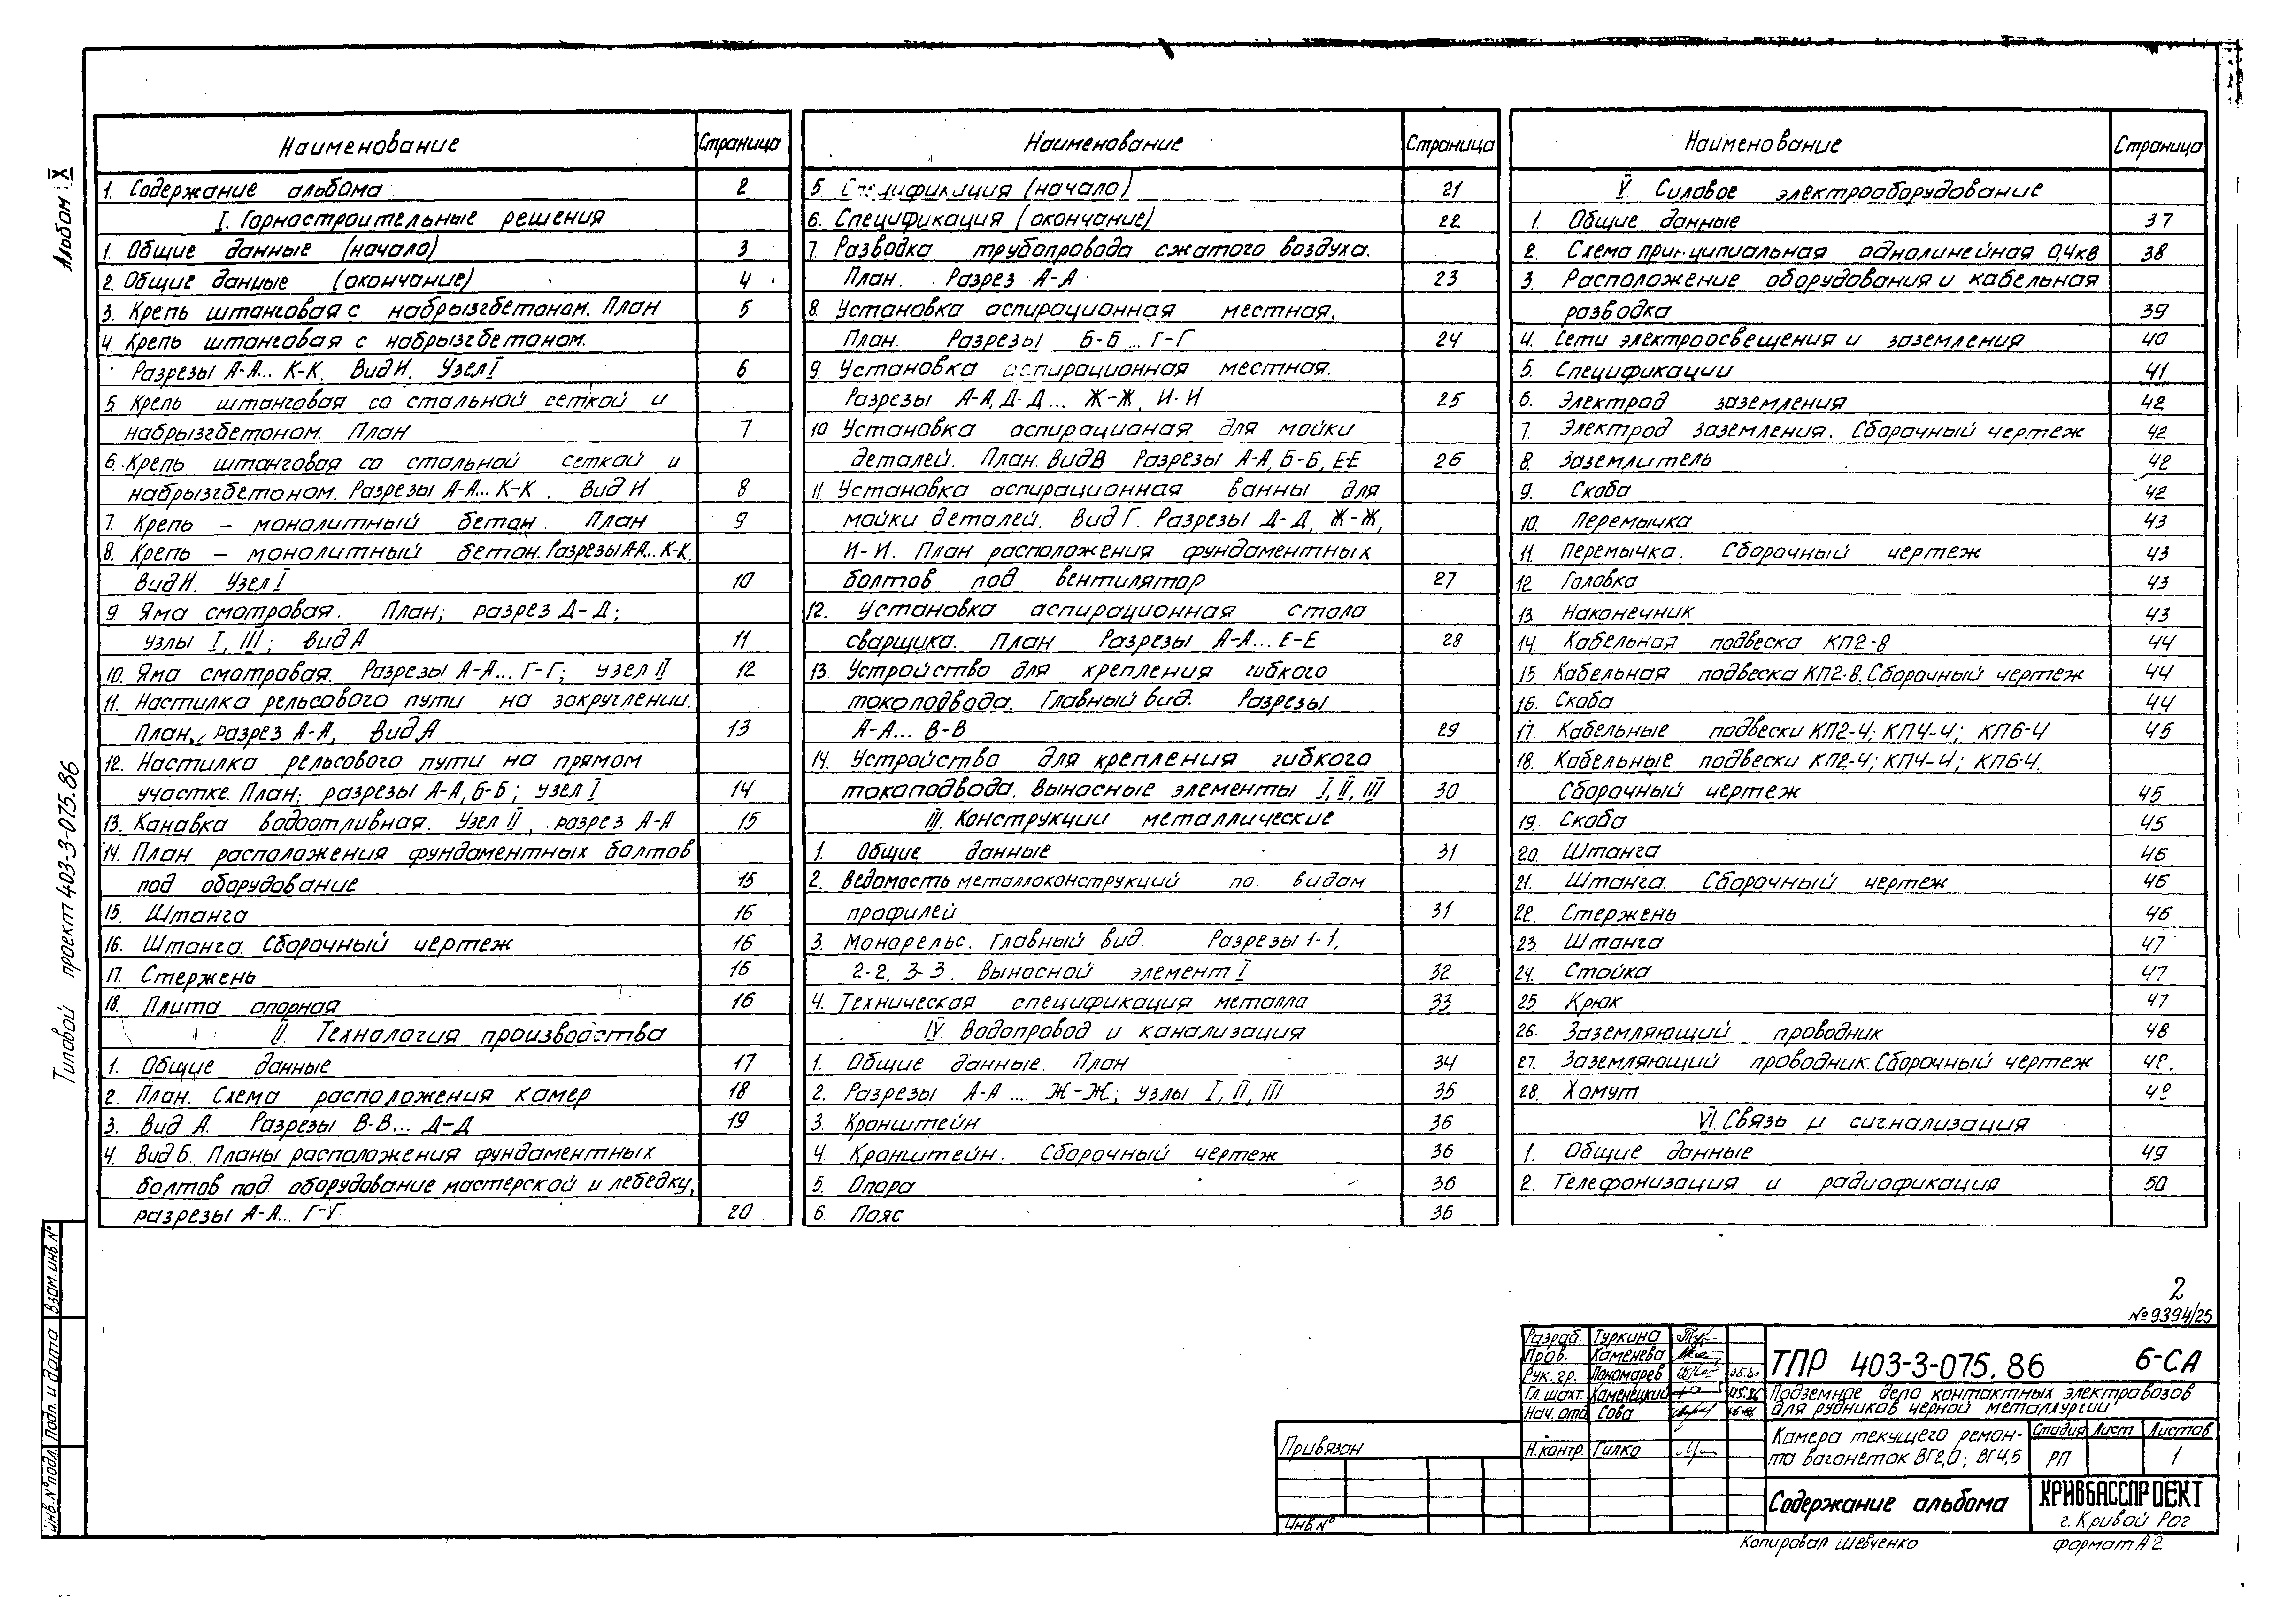 Альбом X
Типовой проект 403-3-075.86
Наименование Страница
1. Содержание альбома 2
I. Горностроительные решения
1. Общие данные (начало) 3
2. Общие данные (окончание) 4
3. Крепь штанговая с набрызгбетоном. План 5
4 Крепь штанговая с набрызгбетоном.
Разрезы А-А... К-К. Вид И. Узел I 6
5. Крепь штанговая со стальной сеткой и
набрызгбетоном. План 7
6. Крепь штанговая со стальной сеткой и
набрызгбетоном. Разрезы А-А... К-К. Вид И 8
7. Крепь – монолитный бетон. План 9
8. Крепь – монолитный бетон. Разрезы А-А... К-К.
Вид И. Узел I 10
9. Яма смотровая. План; разрез Д-Д;
узлы I, III; вид А 11
10. Яма смотровая. Разрезы А-А... Г-Г; узел II 12
11. Настилка рельсового пути на закруглении.
План, разрез А-А, вид А 13
12. Настилка рельсового пути на прямом
участке. План; разрезы А-А, Б-Б; узел I 14
13. Канавка водоотливная. Узел II, разрез А-А 15
14. План расположения фундаментных болтов
под оборудование 15
15. Штанга 16
16. Штанга. Сборочный чертеж 16
17. Стержень 16
18. Плита опорная 16
II. Технология производства
1. Общие данные 17
2. План. Схема расположения камер 18
3. Вид А. Разрезы В-В... Д-Д 19
4. Вид Б. Планы расположения фундаментных
болтов под оборудование мастерской и лебедку,
разрезы А-А... Г-Г 20
Наименование Страница
5. Спецификация (начало) 21
6. Спецификация (окончание) 22
7. Разводка трубопровода сжатого воздуха.
План. Разрез А-А 23
8. Установка аспирационная местная.
План. Разрезы Б-Б... Г-Г 24
9. Установка аспирационная местная.
Разрезы А-А, Д-Д... Ж-Ж, И-И 25
10 Установка аспирационая для мойки
деталей. План. Вид В. Разрезы А-А, Б-Б, Е-Е 26
11 Установка аспирационная ванны для
мойки деталей. Вид Г. Разрезы Д-Д, Ж-Ж,
И-И. План расположения фундаментных
болтов под вентилятор 27
12. Установка аспирационная стола
сварщика. План Разрезы А-А... Е-Е 28
13. Устройство для крепления гибкого
токоподвода. Главный вид. Разрезы
А-А... В-В 29
14. Устройство для крепления гибкого
токоподвода. Выносные элементы I, II, III 30
III. Конструкции металлические
1. Общие данные 31
2. Ведомость металлоконструкций по видам
профилей 31
3. Монорельс. Главный вид. Разрезы 1-1,
2-2, 3-3. Выносной элемент I 32
4. Техническая спецификация металла 33
IV. Водопровод и канализация
1. Общие данные. План 34
2. Разрезы А-А .... Ж-Ж; узлы I, II, III 35
3. Кронштейн 36
4. Кронштейн. Сборочный чертеж 36
5. Опора 36
6. Пояс 36
Наименование Страница
V. Силовое электрооборудование
1. Общие данные 37
2. Схема принципиальная однолинейная 0,4кв 38
3. Расположение оборудования и кабельная
разводка 39
4. Сети электроосвещения и заземления 40
5. Спецификации 41
6. Электрод заземления 42
7. Электрод заземления. Сборочный чертеж 42
8. Заземлитель 42
9. Скоба 42
10. Перемычка 43
11. Перемычка. Сборочный чертеж 43
12 Головка 43
13. Наконечник 43
14. Кабельная подвеска КП2-8 44
15. Кабельная подвеска КП2-8. Сборочный чертеж 44
16. Скоба 44
17. Кабельные подвески КП2-4; КП4-4; КП6-4 45
18. Кабельные подвески КП2-4; КП4-4; КП6-4.
Сборочный чертеж 45
19. Скоба 45
20. Штанга 46
21. Штанга. Сборочный чертеж 46
22. Стержень 46
23. Штанга 47
24. Стойка 47
25 Крюк 47
26. Заземляющий проводник 48
27. Заземляющий проводник. Сборочный чертеж 48
28. Хомут
VI. Связь и сигнализация
1. Общие данные 49
2. Телефонизация и радиофикация 50
2
№9394/25
Разраб. Туркина
Пров. Каменева
Рук. гр. Пономарев
Гл. шахт. Каменецкий 05.86
Нач. отд Сова
Н.контр. Гилко
ТПР 403-3-075.86 6-СА
Подземное депо контактных электровозов
для рудников черной металлургии
Камера текущего ремон-
та вагонеток ВГ2,0; ВГ4,5
Стадия Лист Листов
РП 1
Содержание альбома
КРИВБАССПРОЕКТ
г. Кривой Рог
Привязан
Инв.№
Копировал Шевченко формат А2
Взам. инв. №
Подп. и дата
Инв. № подл.